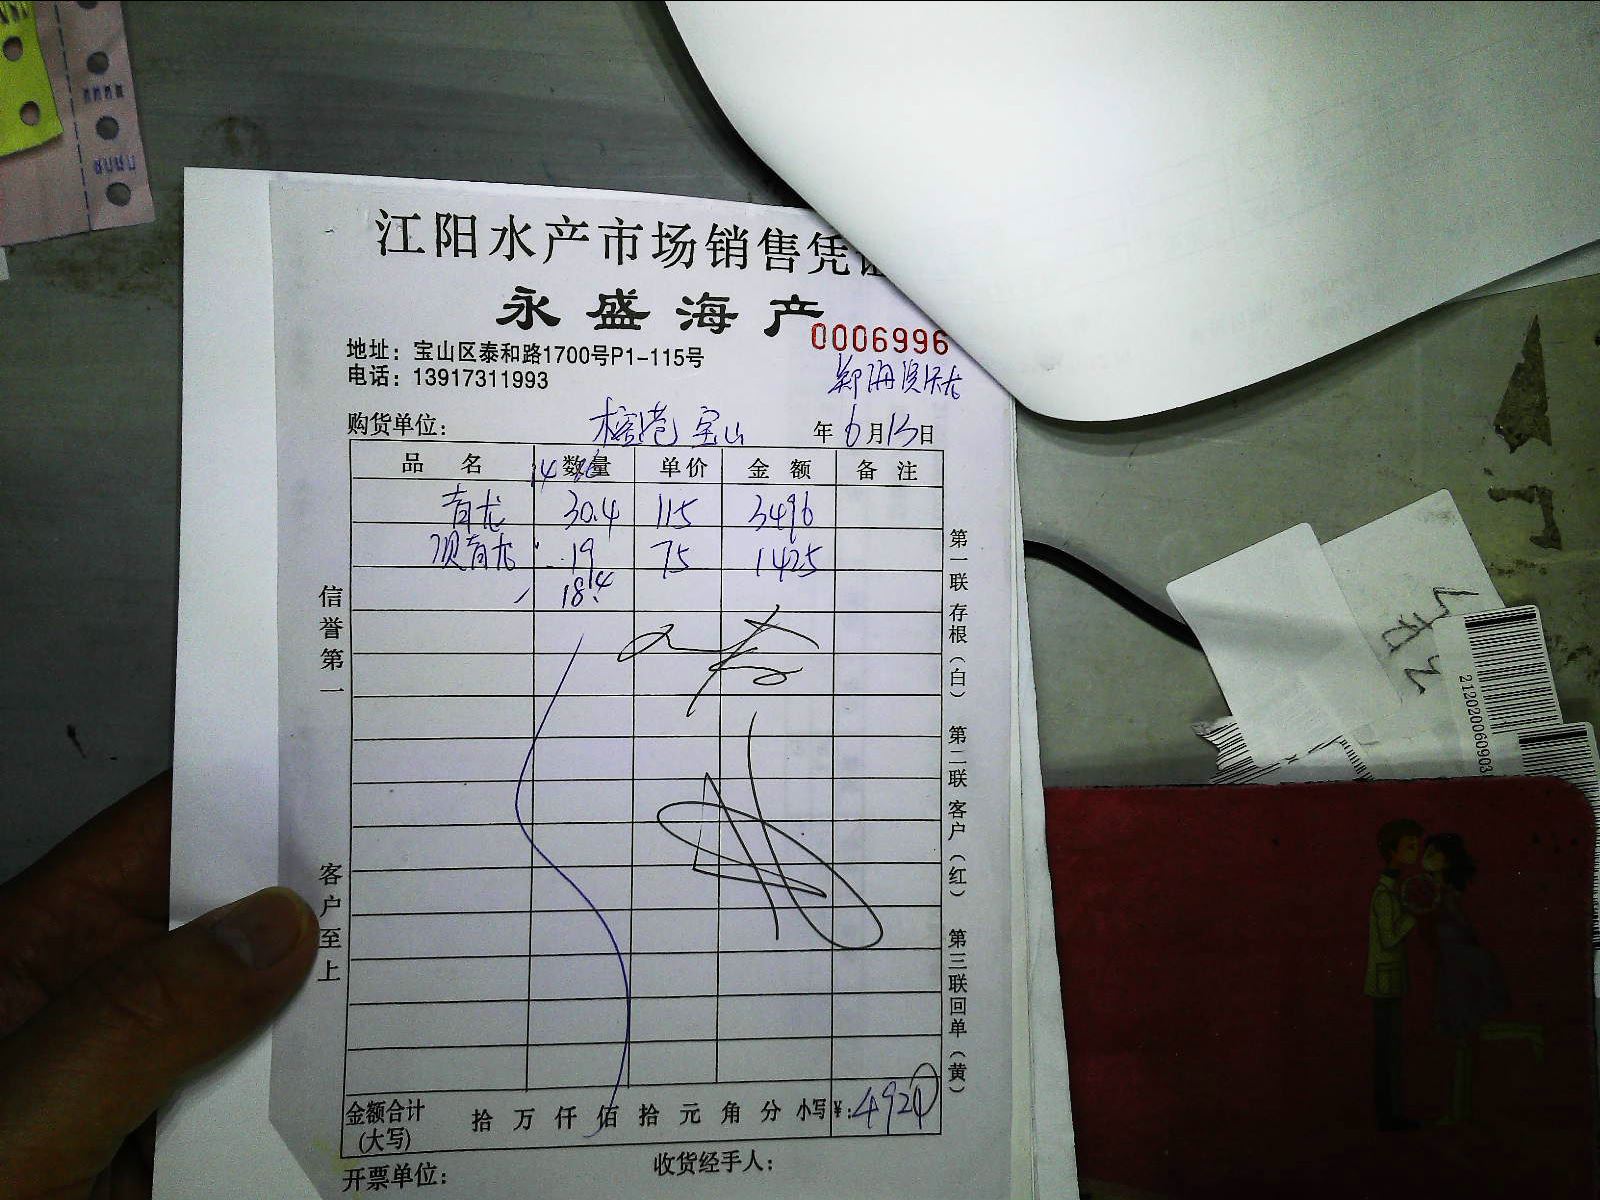 江阳水产市场销售凭证
永盛海产
0006996
地址：宝山区泰和路1700号P1-115号
电话：13917311993
购货单位： 宝山 年 6 月 13 日
品名 数量 单价 金额 备注
青龙 30.4 115 3496
青龙 19 75 1425
18.4
信誉第一
客户至上
第一联存根（白）
第二联客户（红）
第三联回单（黄）
金额合计(大写) 拾 万 仟 佰 拾 元 角 分 小写¥：4920
开票单位：
收货经手人：
2120200060903